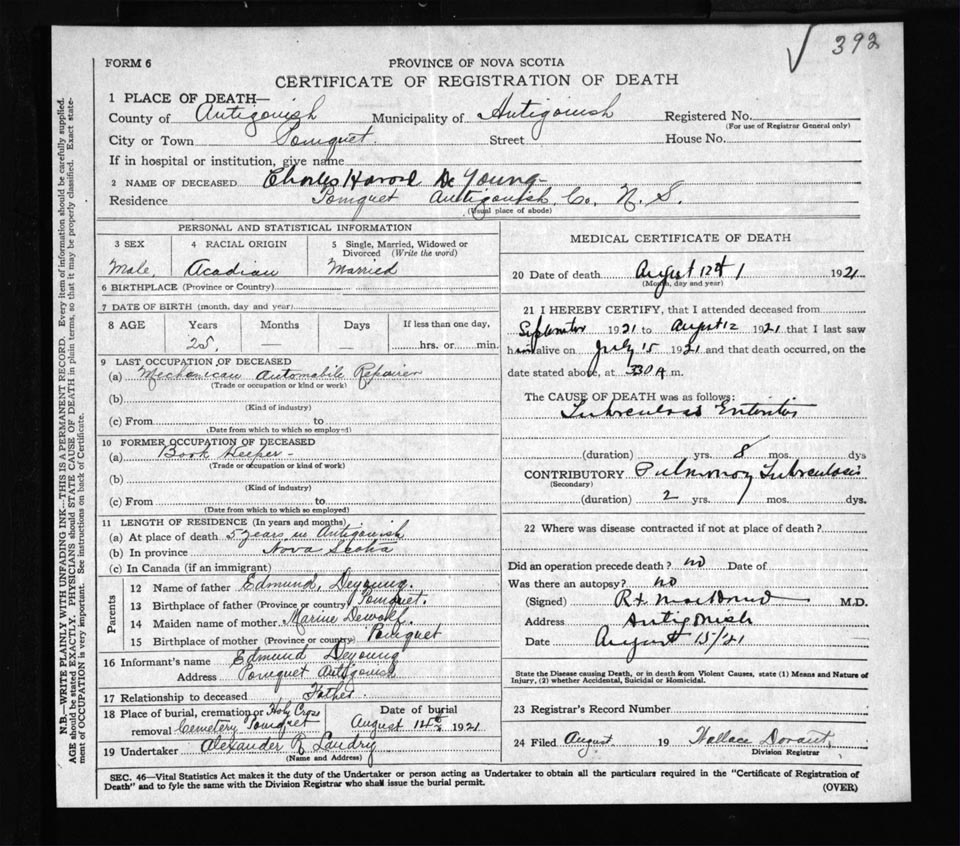 392
FORM 6
PROVINCE OF NOVA SCOTIA
CERTIFICATE OF REGISTRATION OF DEATH
1 PLACE OF DEATH—
County of Antigonish Municipality of Antigonish Registered No.
(For use of Registrar General only)
City or Town Pomquet. Street House No.
If in hospital or institution, give name
2 NAME OF DECEASED Charles Harold De Young
Residence Pomquet Antigonish, Co, N. S.
(Usual place of abode)
PERSONAL AND STATISTICAL INFORMATION
3 SEX 4 RACIAL ORIGIN 5 Single, Married, Widowed or Divorced (Write the word)
Male, Acadian Married
6 BIRTHPLACE (Province or Country)
7 DATE OF BIRTH (month, day and year)
8 AGE Years Months Days If less than one day,
25, — — hrs. or min.
9 LAST OCCUPATION OF DECEASED
(a) Mechanican Automobile Repairer
(Trade or occupation or kind or work)
(b)
(Kind of industry)
(c) From to
(Date from which to which so employed)
10 FORMER OCCUPATION OF DECEASED
(a) Book Keeper -
(Trade or occupation or kind of work)
(b)
(Kind of industry)
(c) From to
(Date from which to which so employed)
11 LENGTH OF RESIDENCE (In years and months)
(a) At place of death 5 years in Antigonish
(b) In province Nova Scotia
(c) In Canada (if an immigrant)
Parents
12 Name of father Edmund, Deyoung.
13 Birthplace of father (Province or country) Pomquet.
14 Maiden name of mother Dewolf.
15 Birthplace of mother (Province or country) Pomquet
16 Informant's name Edmund Deyoung
Address Pomquet Antigonish
17 Relationship to deceased Father.
18 Place of burial, cremation or removal Holy Cross Cemetery Pomquet
Date of burial August 1921
19 Undertaker Alexander R Landry
(Name and Address)
MEDICAL CERTIFICATE OF DEATH
20 Date of death August 12th 1921
(Month, day and year)
21 I HEREBY CERTIFY, that I attended deceased from
September 1921 to August 12 1921 that I last saw
him alive on July 15 1921 and that death occurred, on the
date stated above, at 330 A m.
The CAUSE OF DEATH was as follows:
Tuberculosis Enteritis
(duration) yrs. 8 mos. dys
CONTRIBUTORY Pulmonary Tuberculosis
(Secondary)
(duration) 2 yrs. mos. dys.
22 Where was disease contracted if not at place of death?
Did an operation precede death? no Date of
Was there an autopsy? no
(Signed) MacDonald M.D.
Address Antigonish
Date August 15/21
State the Disease causing Death, or in death from Violent Causes, state (1) Means and Nature of
Injury, (2) whether Accidental, Suicidal or Homicidal.
23 Registrar's Record Number
24 Filed August. 19 Wallace
Division Registrar
SEC. 46—Vital Statistics Act makes it the duty of the Undertaker or person acting as Undertaker to obtain all the particulars required in the "Certificate of Registration of
Death" and to fyle the same with the Division Registrar who shall issue the burial permit.
(OVER)
N.B.—WRITE PLAINLY WITH UNFADING INK—THIS IS A PERMANENT RECORD. Every item of information should be carefully supplied.
AGE should be stated EXACTLY. PHYSICIANS should STATE CAUSE OF DEATH in plain terms, so that it may be properly classified. Exact state-
ment of OCCUPATION is very important. See instructions on back of Certificate.